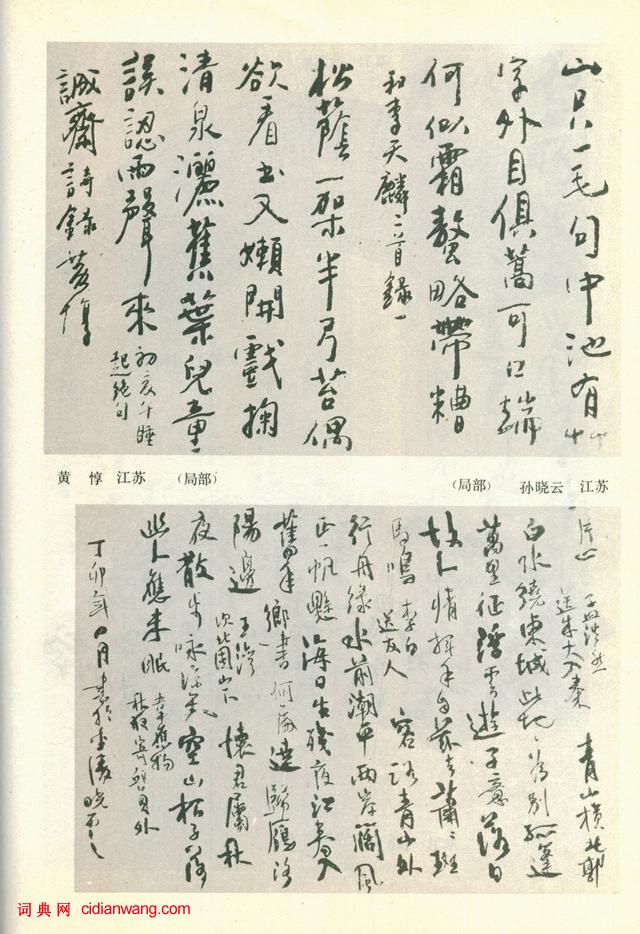 山只一毛句中池有艸
字外目俱蒿可口端
何似霜螯略帶糟
和李天麟二首錄一
松蔭一架半弓苔偶
欲看书又嬾開戲掬
清泉灑蕉葉兒童
誤認雨聲來
初夏午睡
起絕句
誠齋詩錄 黄惇
黄 惇 江苏 （局部）
（局部） 孙晓云 江苏
一片心
孟浩然
送朱大入秦
青山橫北郭
白水繞東城此地一为別孤蓬
萬里征浮雲遊子意落日
故人情揮手自茲去蕭〻班
馬鳴
李白
送友人
客路青山外
行舟綠水前潮平兩岸闊風
正一帆懸海日生殘夜江春入
舊年鄉書何處達歸雁洛
陽邊
王灣
次北固山下
懷君屬秋
夜散步咏涼天空山松子落
幽人應未眠
韋應物
秋夜寄邱員外
丁卯年八月
词典网 cidianwang.com